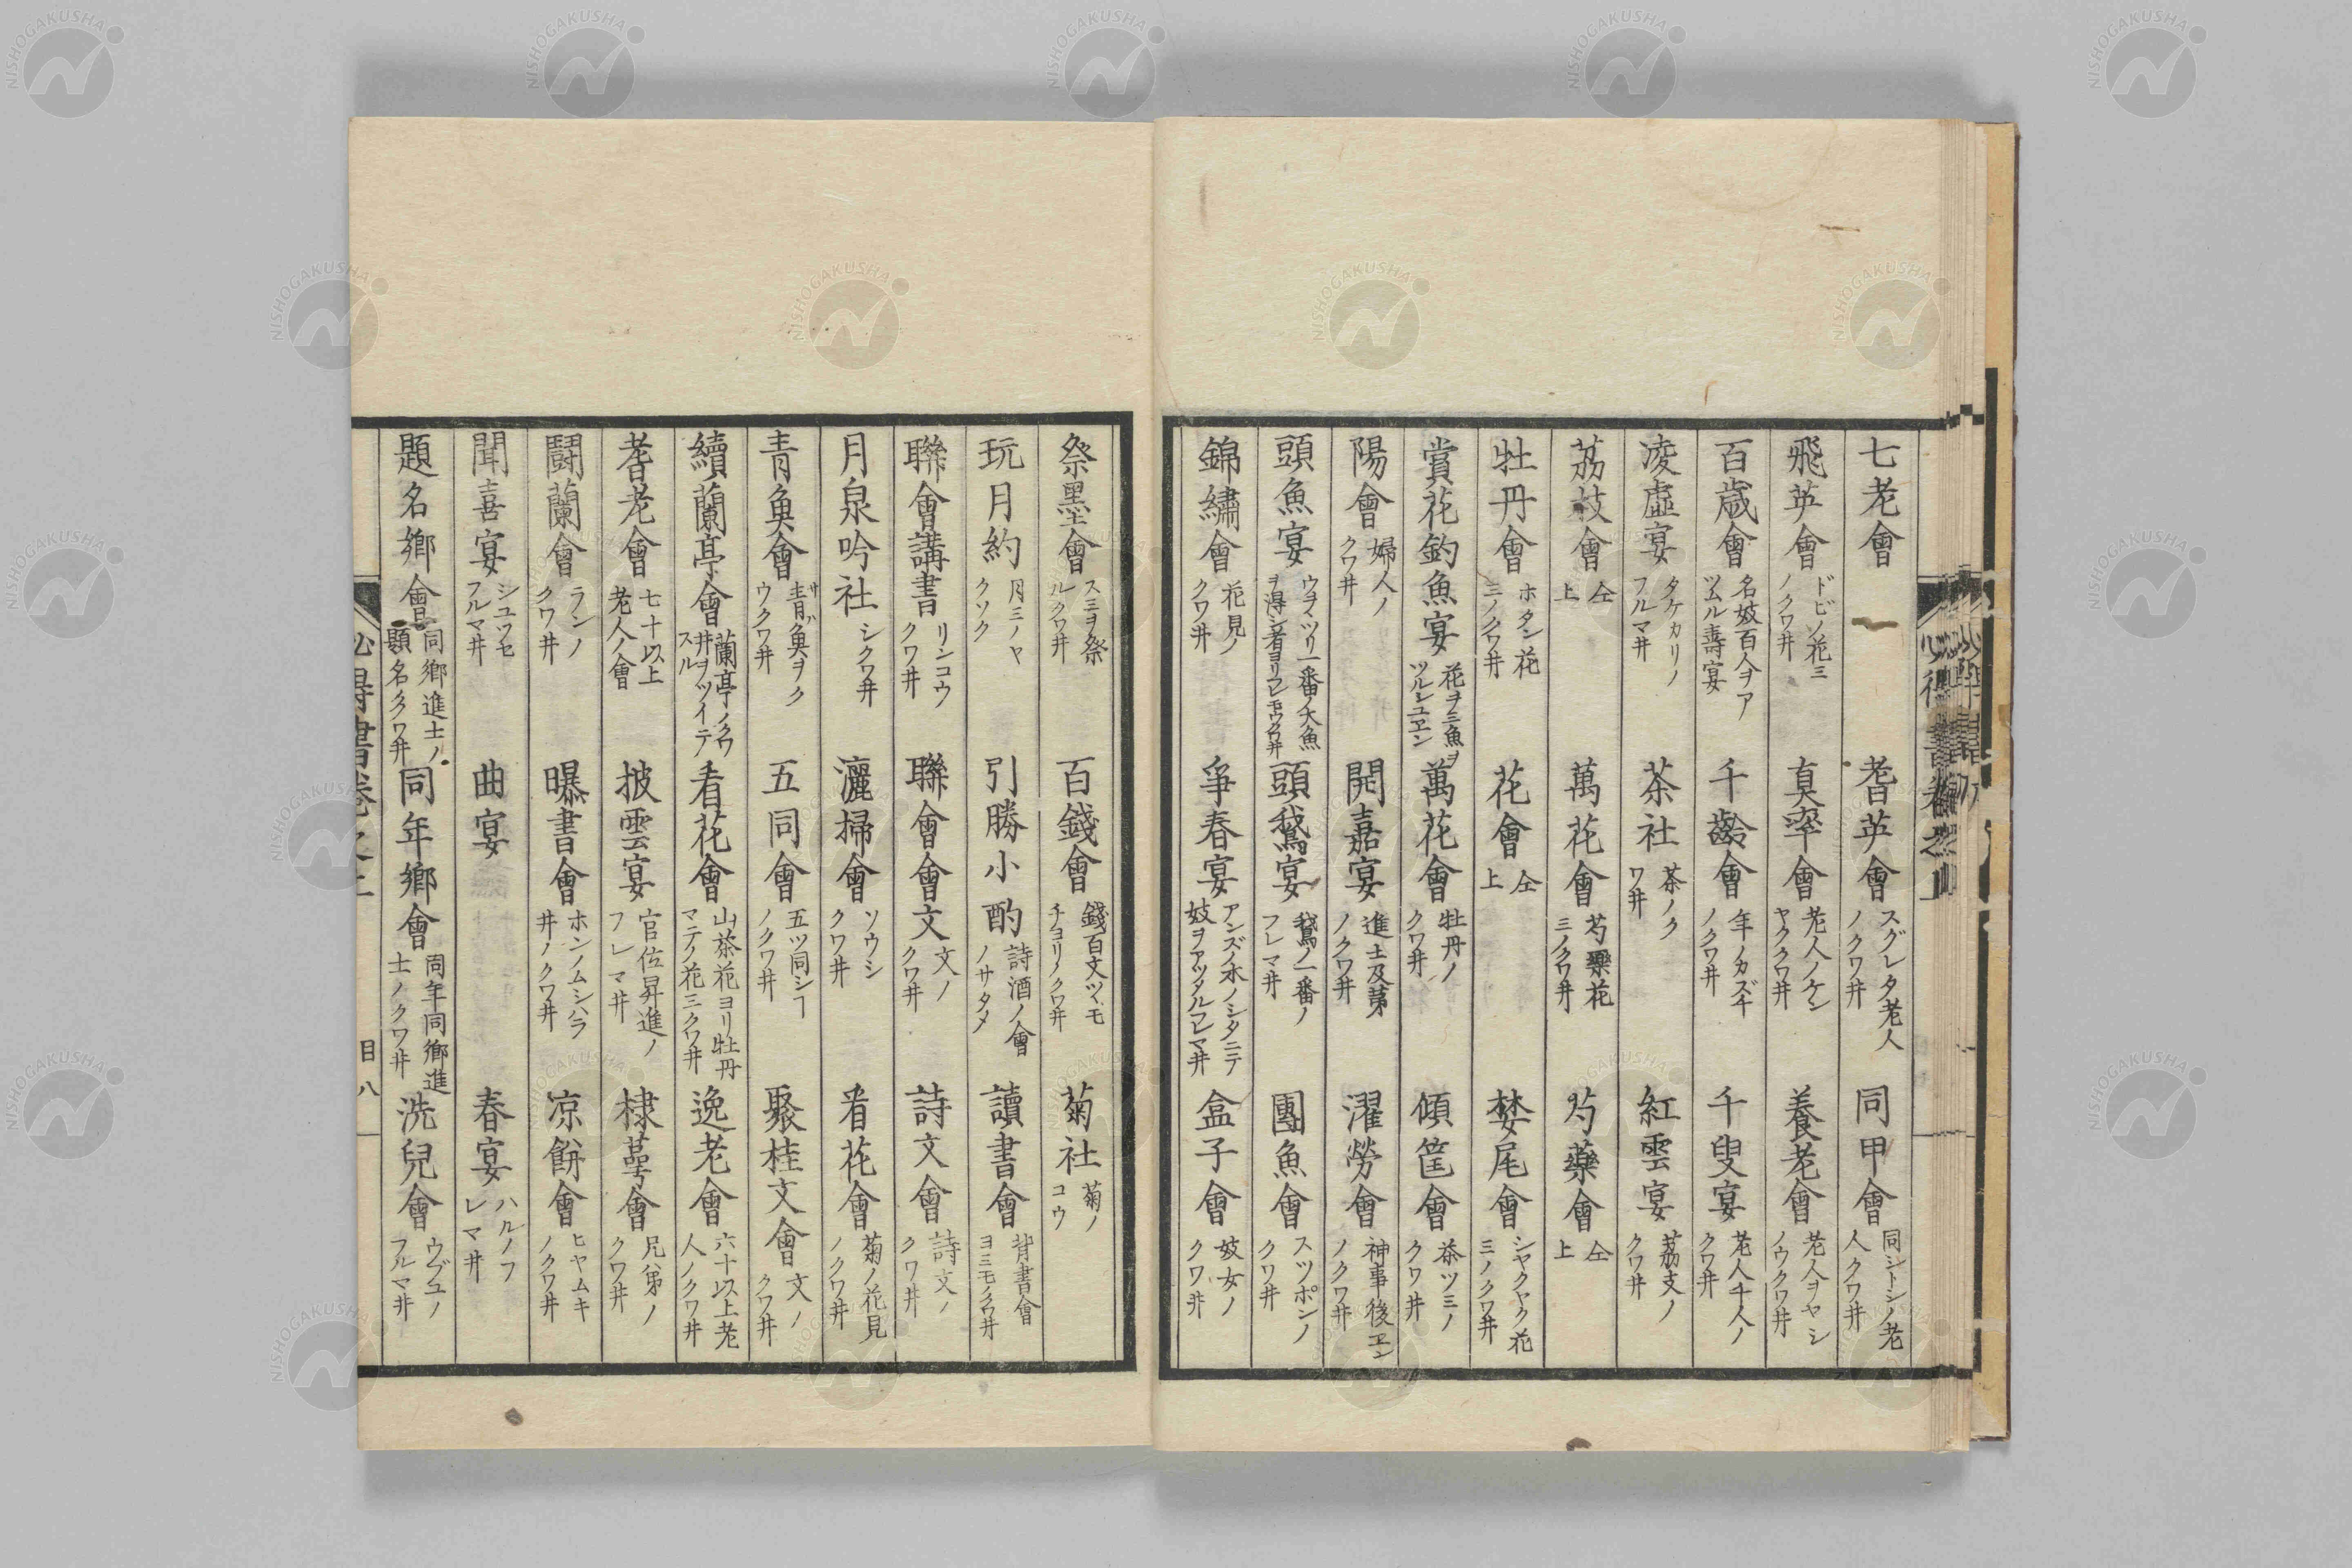 七老會 耆英會 スグレタ老人ノクワ井 同甲會 同シトシノ老人クワ井
飛英會 ドビノ花三ノクワ井 真率會 老人ノケンヤククワ井 養老會 老人ヲヤシノウクワ井
百歳會 名妓百人ヲアツムル壽宴 千齡會 年ノカズ千ノクワ井 千叟宴 老人千人ノクワ井
凌虛宴 タケカリノフルマ井 茶社 茶ノクワ井 紅雲宴 茘支ノクワ井
茘枝會 仝上 萬花會 芍藥花三ノクワ井 芍藥會 仝上
牡丹會 ホタン花三ノクワ井 花會 仝上 婪尾會 シヤクヤク花ミノクワ井
賞花釣魚宴 花ヲ三魚ヲツルシユエン 萬花會 牡丹ノクワ井 傾筐會 茶ツミノクワ井
陽會 婦人ノクワ井 開嘉宴 進士及第ノクワ井 濯勞會 神事後エンノクワ井
頭魚宴 ウヲツリ一番ノ大魚ヲ得シ者ヨリ 頭鵞宴 鵞ノ一番ノフレマ井 團魚會 スツポンノクワ井
錦繡會 花見ノクワ井 爭春宴 アンズノ木ノシタニテ妓ヲアツタルフレマ井 盒子會 妓女ノクワ井
祭墨會 ス三ヲ祭ルクワ井 百錢會 錢百文ツヽモチヨリノクワ井 菊社 菊ノコウ
玩月約 月三ノヤクソク 引勝小酌 詩酒ノ會ノサタメ 讀書會 背書會ヨミモノクワ井
聯會講書 リンコウクワ井 聯會會文 文ノクワ井 詩文會 詩文ノクワ井
月泉吟社 シクワ井 灑掃會 ソウシクワ井 看花會 菊ノ花見ノクワ井
青奐會 青奐ヲクウクワ井 五同會 五ツ同シヿノクワ井 聚桂文會 文ノクワ井
續蘭亭會 蘭亭ノクワ井ヲツイテスル 看花會 山茶花ヨリ牡丹マテノ花三クワ井 逸老會 六十以上老人ノクワ井
耆老會 七十以上老人ノ會 披雲宴 官位昇進ノフレマ井 棣萼會 兄弟ノクワ井
鬪蘭會 ランノクワ井 曝書會 ホンノムシハラ井ノクワ井 凉餅會 ヒヤムキノクワ井
聞喜宴 シユツセフルマ井 曲宴 春宴 ハルノフレマ井
題名鄉會 同鄉進士ノ題名クワ井 同年鄉會 同年同鄉進士ノクワ井 洗兒會 ウブユノフルマ井
目八
NISHOGAKUSHA